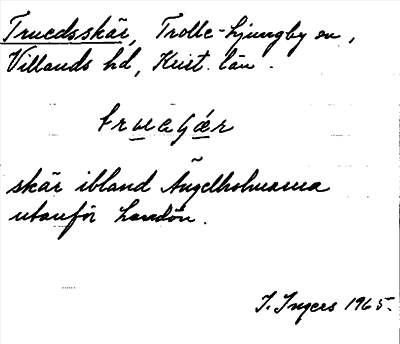 Truedsskär, Trolle-Ljungby sn,
Villands hd, Krist. län.
skär ibland Ängelholmarna
utanför Landön.
I. Ingers 1965.